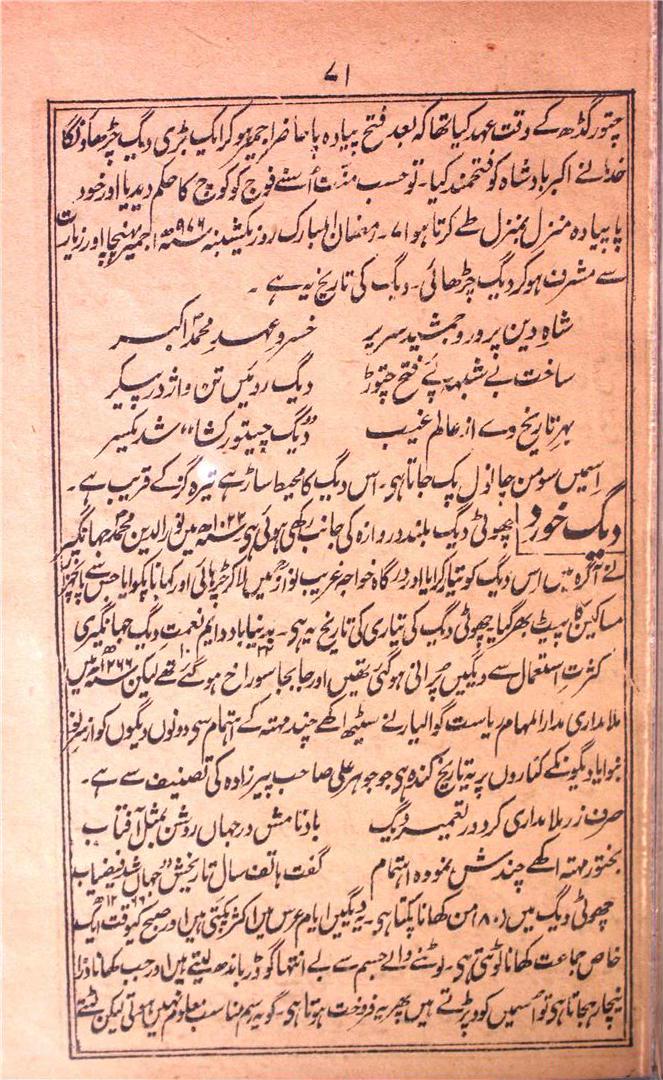 ۷۱
چتور گڈھ کے وقت عہد کیا تھا کہ بعد فتح پیادہ پا حاضر اجمیر ہو کر ایک بڑی دیگ چڑھاونگا
خدا نے اکبر بادشاہ کو فتحمند کیا۔ تو حسب منّت اُسنے فوج کو کوچ کا حکم دیدیا اور خود
پاپیادہ منزل بمنزل طے کرتا ہوا ۷۔ رمضان المبارک روز یکشنبہ ۹۷۶ھ اجمیر پہنچا اور زیارت
سے مشرف ہو کر دیگ چڑھائی۔ دیگ کی تاریخ یہ ہے۔
شاہِ دین پرور و جمشید سریر خسرو عہد محمد اکبر
ساخت بے شبہہ پئے فتح چتوڑ دیگ روئیں تن و اژدر پیکر
بہر تاریخ وے از عالم غیب ”دیگ چیتور کشا“ شد یکسر
اِسمیں سو من چانول پک جاتا ہی۔ اس دیگ کا محیط ساڑھے تیرہ گز کے قریب ہے۔
دیگ خورد چھوٹی دیگ بلند دروازہ کی جانب رکھی ہوئی ہی ۱۰۲۲ھ میں نور الدین محمد جہانگیر
نے آگرہ میں اس دیگ کو تیار کرایا اور درگاہ خواجہ غریب نواز میں لا کر چڑہائی اور کہانا پکوایا جس سے پانچہزار
مساکین کا پیٹ بھر گیا چھوٹی دیگ کی تیاری کی تاریخ یہ ہی۔ بہ دنیا باد دایم نعمت دیگ جہانگیری
کثرت استعمال سے دیگیں پُرانی ہو گئی تھیں اور جا بجا سوراخ ہو گئے تھے لیکن ۱۲۶۶ھ میں
ملا مداری مدار المہام ریاست گوالیار نے سیٹھ اکھے چند مہتہ کے اہتمام سی دونوں دیگوں کو از سر نو
بنوایا دیگونکے کناروں پر یہ تاریخ کندہ ہی جو جوہر علی صاحب پیرزادہ کی تصنیف سے ہے۔
صرف زر ملا مداری کرد در تعمیر دیگ باد نامش در جہاں روشن بمثل آفتاب
بختور مہتہ اکھے چندش نمودہ اہتمام گفت ہاتف سال تاریخش ”جہاں شد فیضیاب ۱۲۶۶ھ
چھوٹی دیگ میں (۸۰) من کھانا پکتا ہی۔ یہ دیگیں ایام عرس میں اکثر پکتی ہیں اور صبح کیوقت ایک
خاص جماعت کھانا لوٹتی ہی۔ لوٹنے والے جسم سے بے انتہا گوڈر باندھ لیتے ہیں اور جب کھانا ذرا
نیچا رہجاتا ہی تو اسمیں کود پڑتے ہیں پھر یہ فروخت ہوتا ہی۔ گو یہ رسم مناسب معلوم نہیں ہوتی لیکن لٹتے